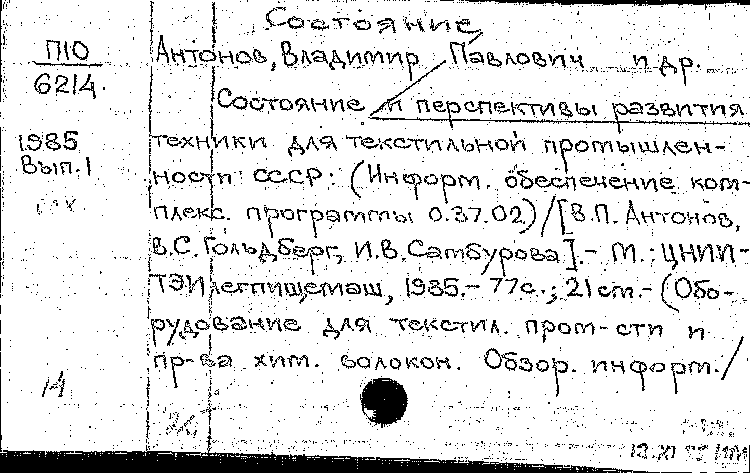 Состояние
П10
6214.
1985
Вып.1
Антонов, Владимир Павлович и др.
Состояние и перспективы развития
техники для текстильной промышлен-
ности СССР: (Информ. обеспечение ком-
плекс. программы 0.37.02)/[В.П. Антонов,
В.С. Гольдберг, И.В. Самбурова].- М.: ЦНИИ-
ТЭИлегпищемаш, 1985.- 77с.; 21 см.- (Обо-
рудование для текстил. пром-сти и
пр-ва хим. волокон. Обзор. информ./